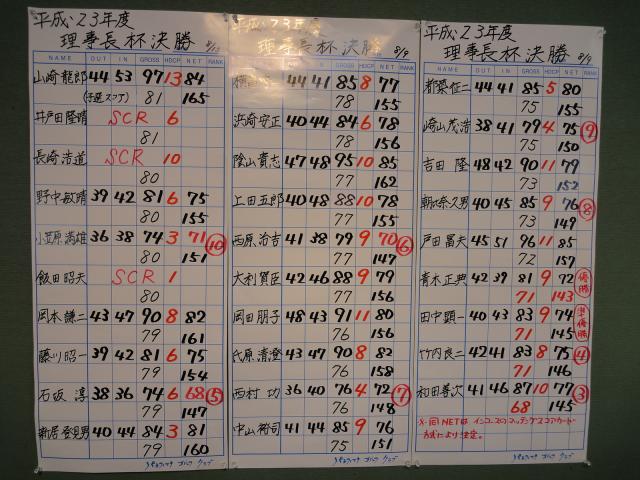 平成23年度
理事長杯決勝 8/19
NAME OUT IN GROSS HDCP NET RANK
山崎龍郎 44 53 97 13 84
(予選スコア) 81 165
井戸田隆晴 SCR 6
81
長崎浩道 SCR 10
80
野中敏晴 39 42 81 6 75
80 155
小笠原満雄 36 38 74 3 71 ⑩
80 151
飯田昭夫 SCR 1
80
岡本謙二 43 47 90 8 82
79 161
藤川昭一 39 42 81 6 75
79 154
石坂淳 38 36 74 6 68 ⑤
79 147
新居登美男 40 44 84 3 81
79 160
平成23年度
理事長杯決勝 8/9
GROSS HDCP NET RANK
44 41 85 8 77
78 155
浜崎安正 40 44 84 6 78
78 156
陰山貴志 47 48 95 10 85
77 162
上田五郎 40 48 88 10 78
77 155
西原治吉 41 38 79 9 70 ⑥
77 147
大利賀臣 42 46 88 9 79
77 156
岡田朋子 48 43 91 11 80
76 156
氏原清澄 43 47 90 8 82
76 158
西村功 36 40 76 4 72 ⑦
76 148
中山裕司 41 44 85 9 76
75 151
平成23年度
理事長杯決勝 8/9
NAME OUT IN GROSS HDCP NET RANK
都築征二 44 41 85 5 80
75 155
崎山茂浩 38 41 79 4 75 ⑨
75 150
吉田隆 48 42 90 11 79
73 152
朝比奈久男 40 45 85 9 76 ⑧
73 149
戸田昌夫 45 51 96 11 85
72 157
青木正典 42 39 81 9 72 優勝
71 143
田中顕一 40 43 83 9 74 準優勝
71 145
竹内良二 42 41 83 8 75 ④
71 146
和田善次 41 46 87 10 77 ③
68 145
※同NETは インコースのマッチングスコアカード
方式により決定。